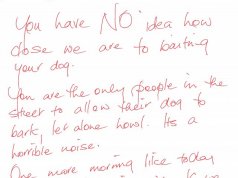 You have NO idea how
close we are to baiting
your dog.
You are the only people in the
street to allow their dog to
bark, let alone howl. Its a
horrible noise.
One more morning like today